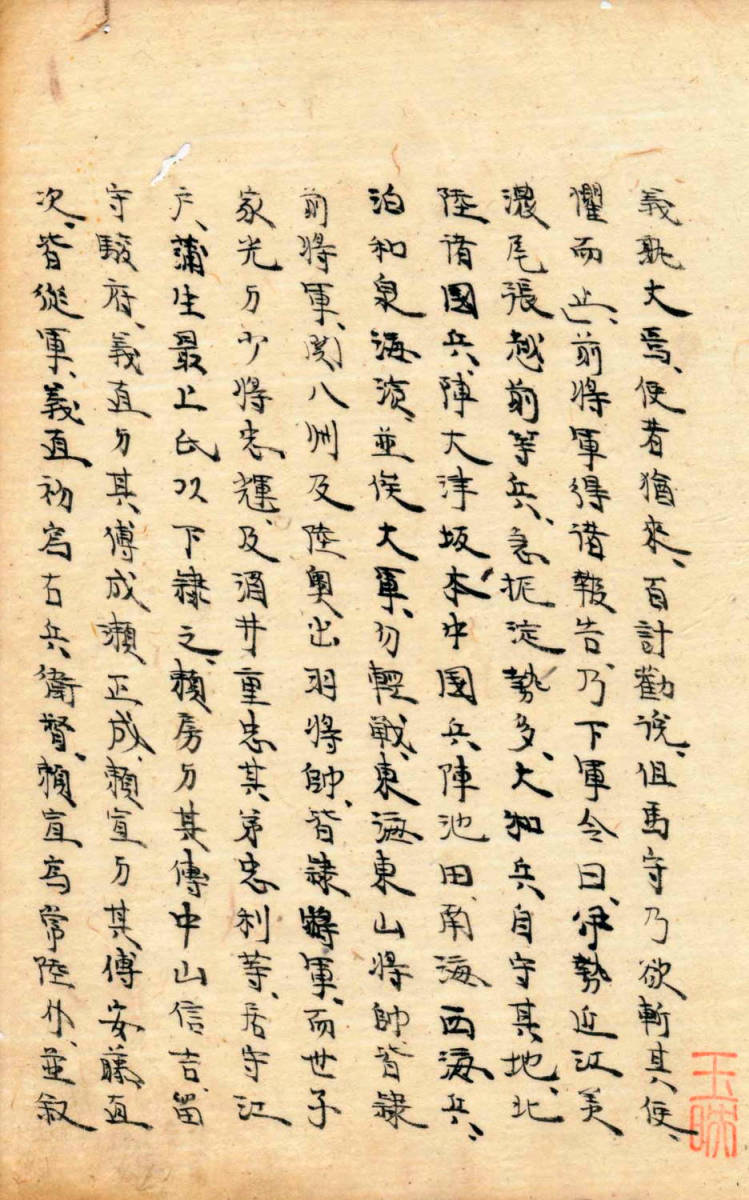 義孰大焉、使者猶來、百計勸說、但馬守乃欲斬其使、
懼而止、前將軍得諸報告、乃下軍令曰、伊勢近江美
濃尾張越前等兵、急扼淀勢多、大和兵自守其地、北
陸諸國兵、陣大津坂本、中國兵、陣池田、南海西海兵、
泊和泉海濱、並俟大軍、勿輕戰、東海東山將帥、皆隷
前將軍、関八州及陸奧出羽將帥、皆隷將軍、而世子
家光与少將忠輝、及酒井重忠其弟忠利等、居守江
戶、蒲生最上氏以下隷之、賴房与其傅中山信吉、留
守駿府、義直与其傅成瀨正成、賴宣与其傅安藤直
次、皆從軍、義直初為右兵衛督、賴宣為常陸介、並叙
玉